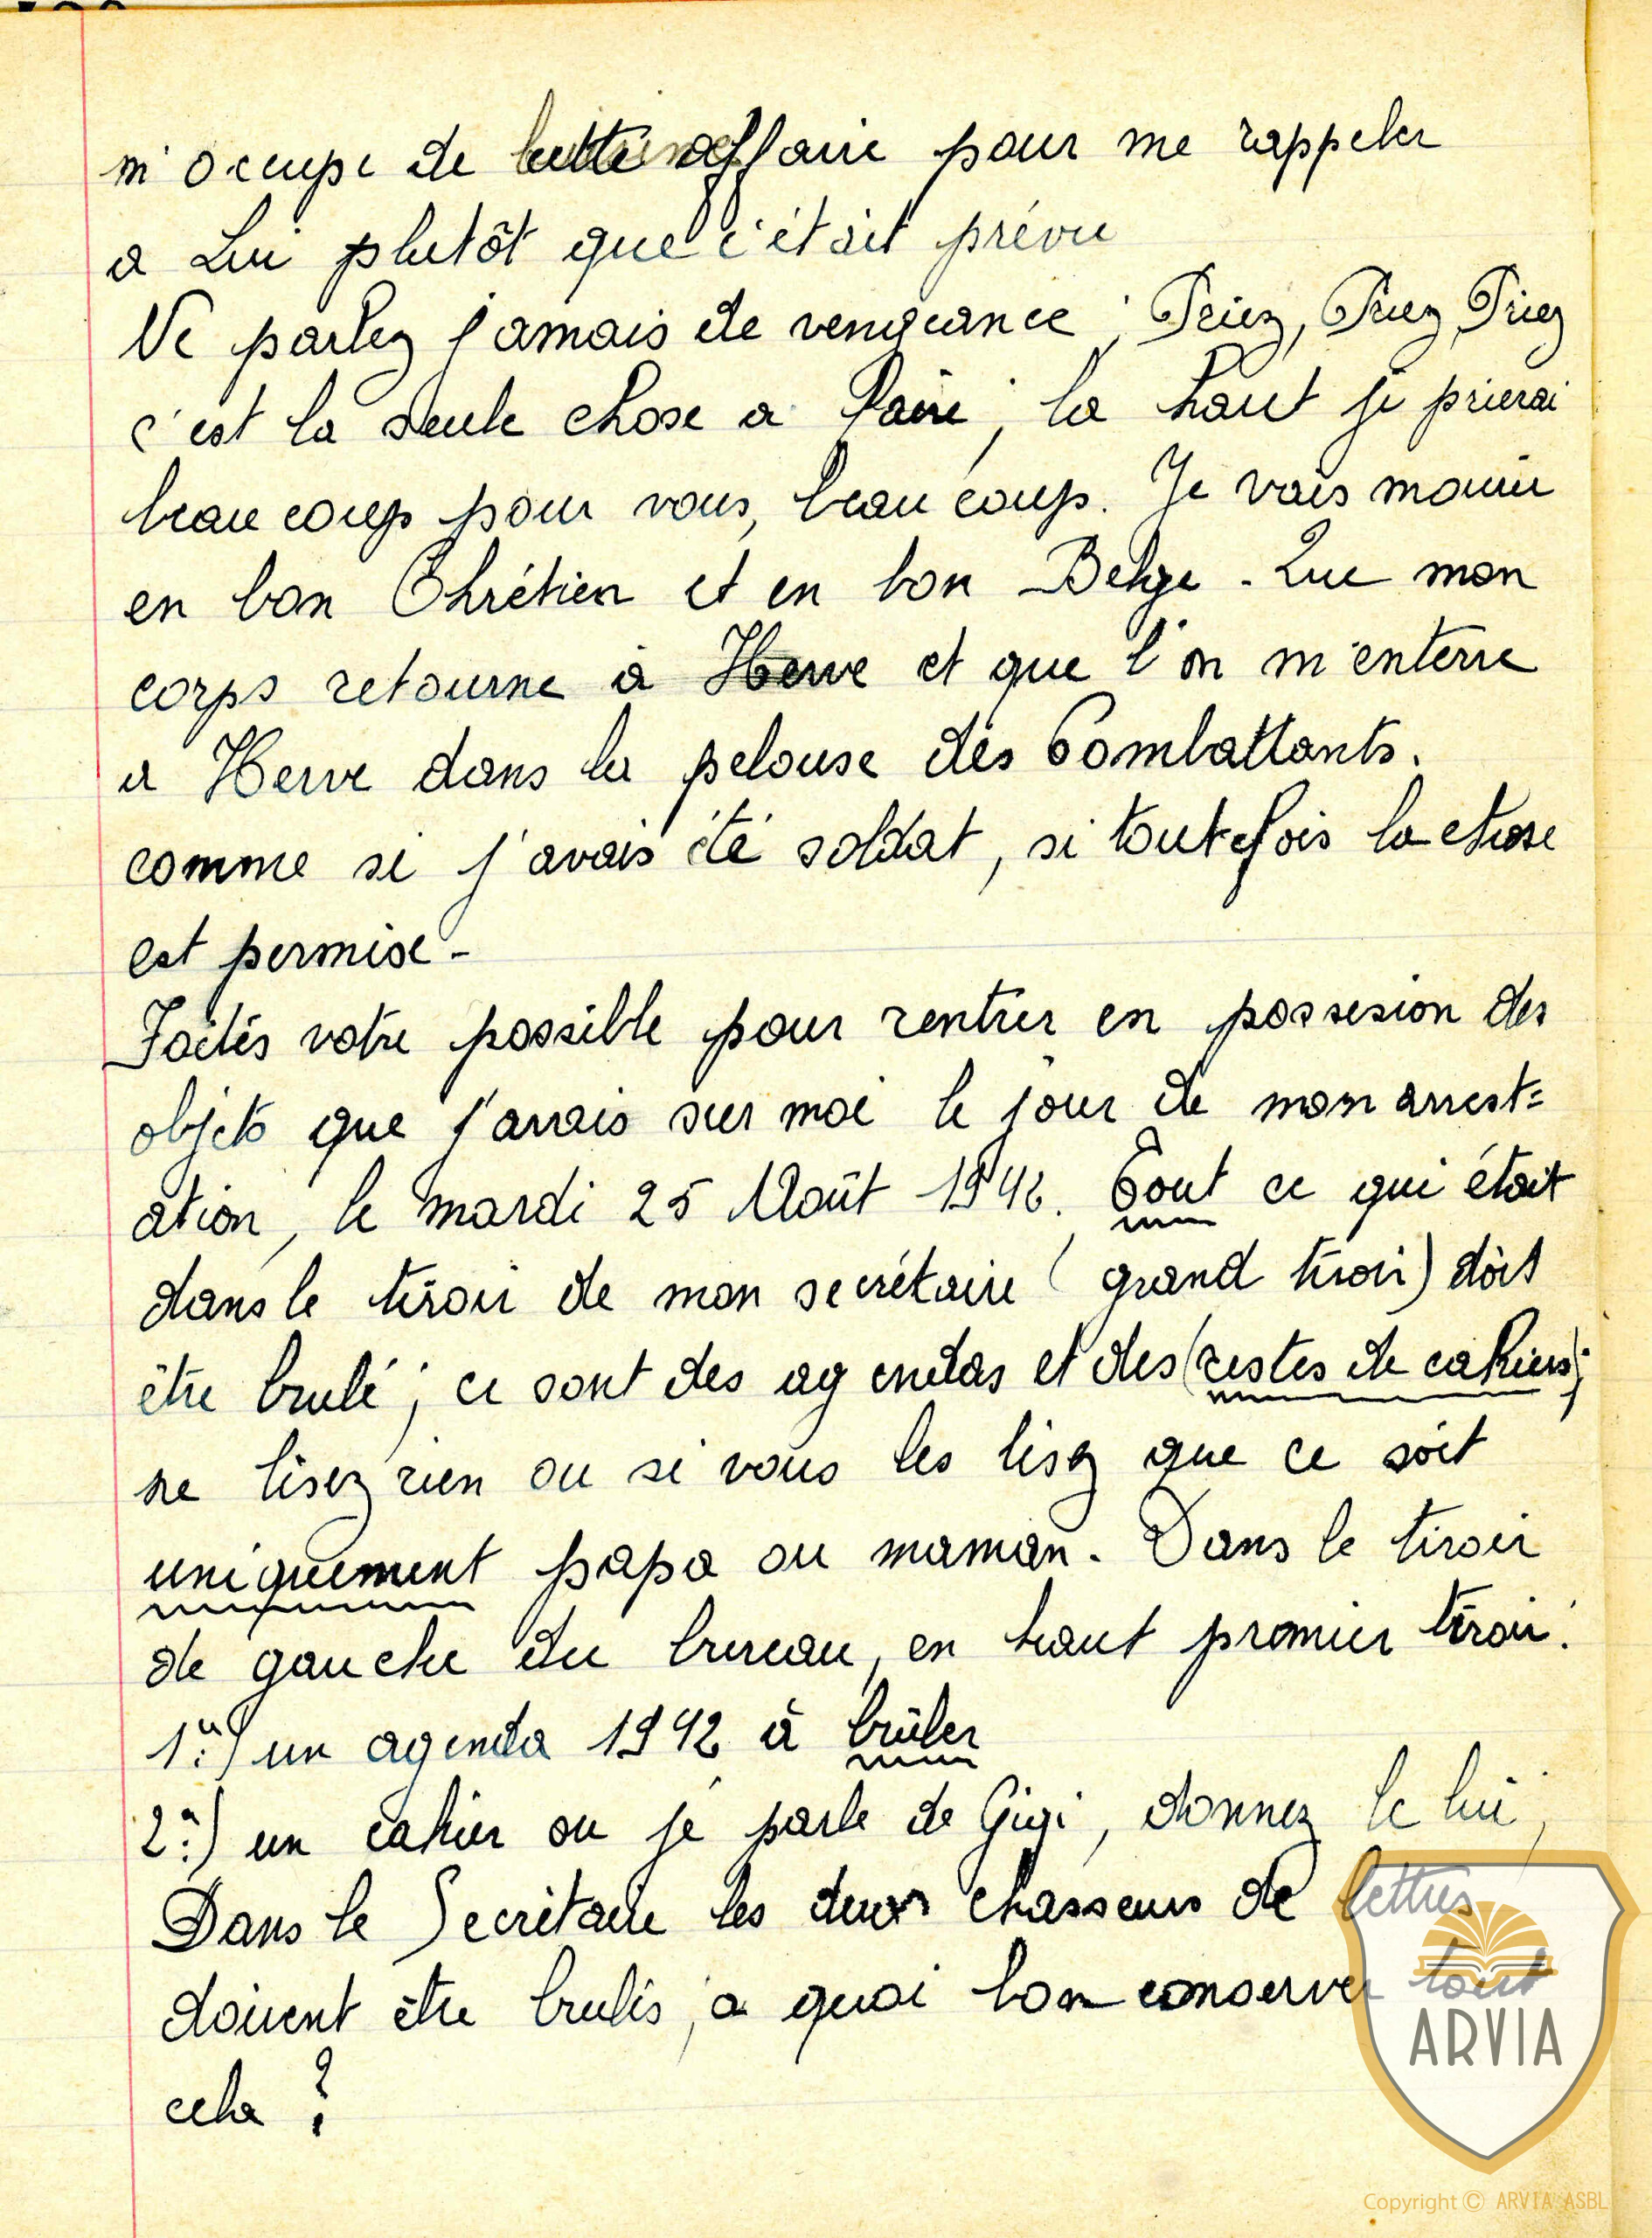 m'occupe de cette affaire pour me rappeler
a Lui plutôt que c'était prévu
Ne parlez jamais de vengeance ; Priez, Priez, Priez
c'est la seule chose a faire ; la haut je prierai
beaucoup pour vous, beaucoup. Je vais mourir
en bon Chrétien et en bon Belge - Que mon
corps retourne à Herve et que l'on m'enterre
a Herve dans la pelouse des Combattants.
comme si j'avais été soldat, si toutefois la chose
est permise -
Faites votre possible pour rentrer en possesion des
objets que j'avais sur moi le jour de mon arrest=
ation, le mardi 25 Août 1942. Tout ce qui était
dans le tiroir de mon secrétaire ( grand tiroir) doit
être brulé ; ce sont des agendas et des (restes de cahiers);
ne lisez rien ou si vous les lisez que ce soit
uniquement papa ou maman. Dans le tiroir
de gauche du bureau, en haut premier tiroir :
1°) un agenda 1942 à brûler
2°) un cahier ou je parle de Gigi, donnez le lui ;
Dans le Secrétaire les deux chasseurs de lettres
doivent être brulés ; a quoi bon conserver tout
cela ?
ARVIA
Copyright © ARVIA ASBL